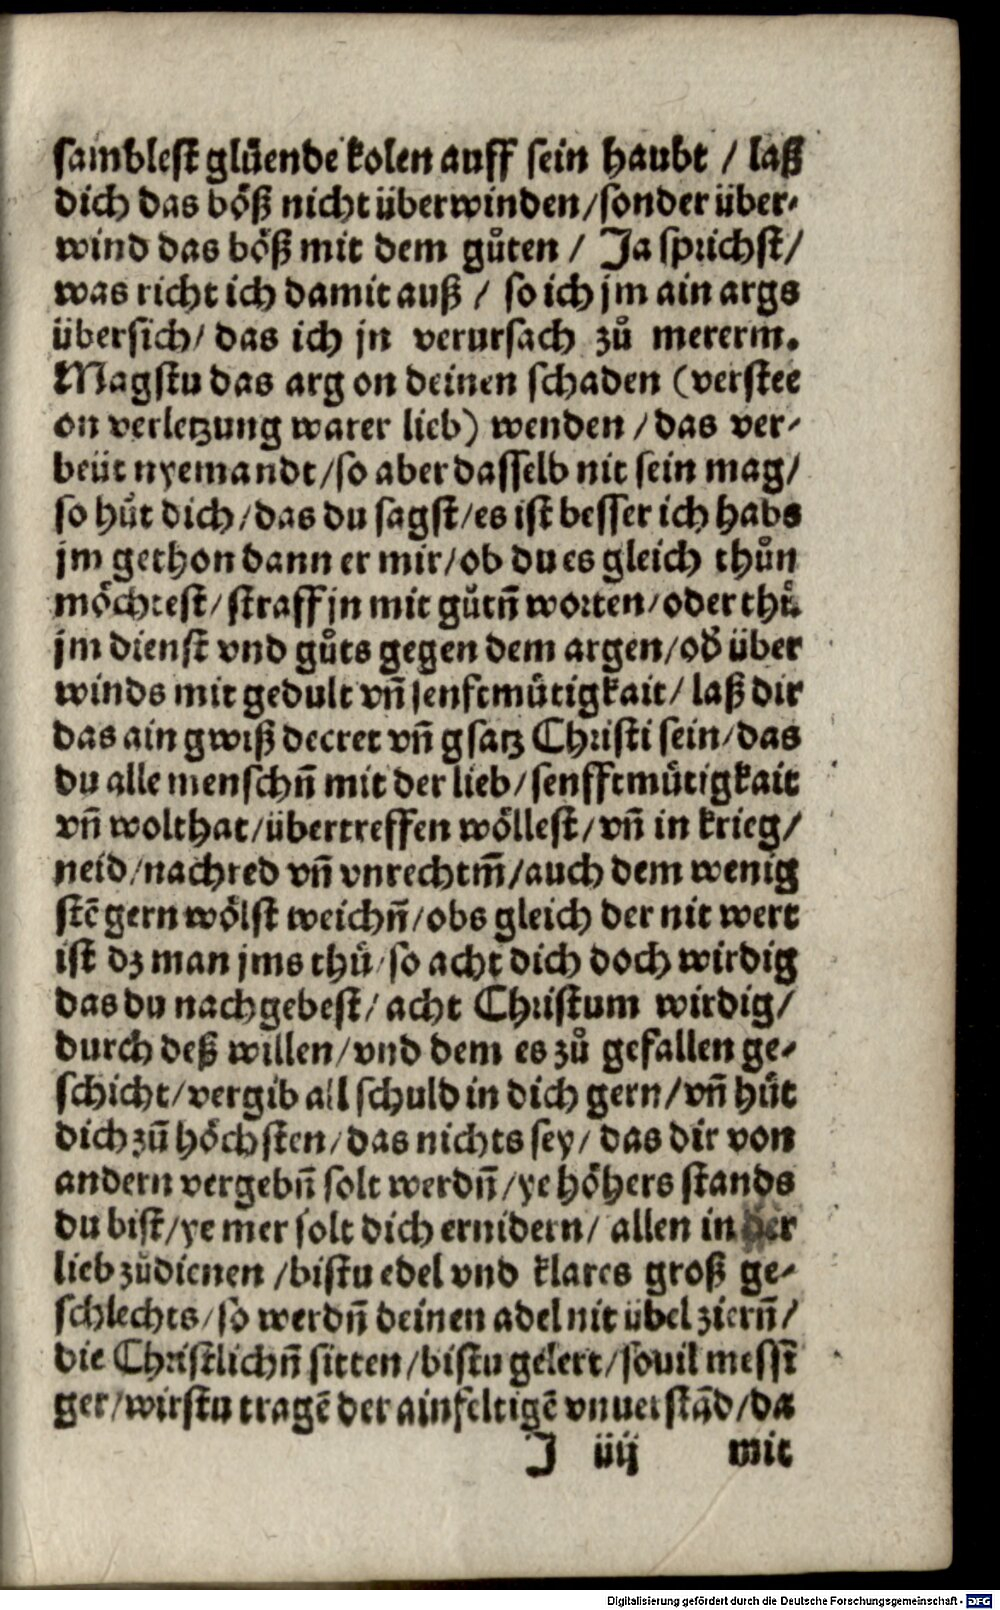 samblest glüende kolen auff sein haubt / laß
dich das böß nicht überwinden/sonder über-
wind das böß mit dem gůten / Ja sprichst/
was richt ich damit auß / so ich jm ain args
übersich/ das ich jn verursach zů mererm.
Magstu das arg on deinen schaden (verstee
on verletzung warer lieb) wenden / das ver-
beüt nyemandt/so aber dasselb nit sein mag/
so hüt dich/das du sagst/es ist besser ich habs
jm gethon dann er mir/ob du es gleich thůn
möchtest/ straff jn mit gůtn̄ worten/oder thů
jm dienst vnd gůts gegen dem argen/od̕ über
winds mit gedult vn̄ senftmütigkait/ laß dir
das ain gwiß decret vn̄ gsatz Christi sein/das
du alle menschn̄ mit der lieb/senfftmütigkait
vn̄ wolthat/übertreffen wöllest/vn̄ in krieg/
neid/nachred vn̄ vnrechtm̄/auch dem wenig
stē gern wölst weichn̄/obs gleich der nit wert
ist dz man jms thü/so acht dich doch wirdig
das du nachgebest/ acht Christum wirdig/
durch deß willen/vnd dem es zů gefallen ge-
schicht/vergib all schuld in dich gern/vn̄ hüt
dich zū höchsten/das nichts sey/ das dir von
andern vergebn̄ solt werdn̄/ye höhers stands
du bist/ye mer solt dich ernidern/ allen in der
lieb zůdienen /bistu edel vnd klares groß ge-
schlechts/so werdn̄ deinen adel nit übel ziern̄/
die Christlichn̄ sitten/bistu gelert/souil messt
ger/wirstu tragē der ainfeltigē vnuerstād/da
J iiij mit
Digitalisierung gefördert durch die Deutsche Forschungsgemeinschaft - DFG